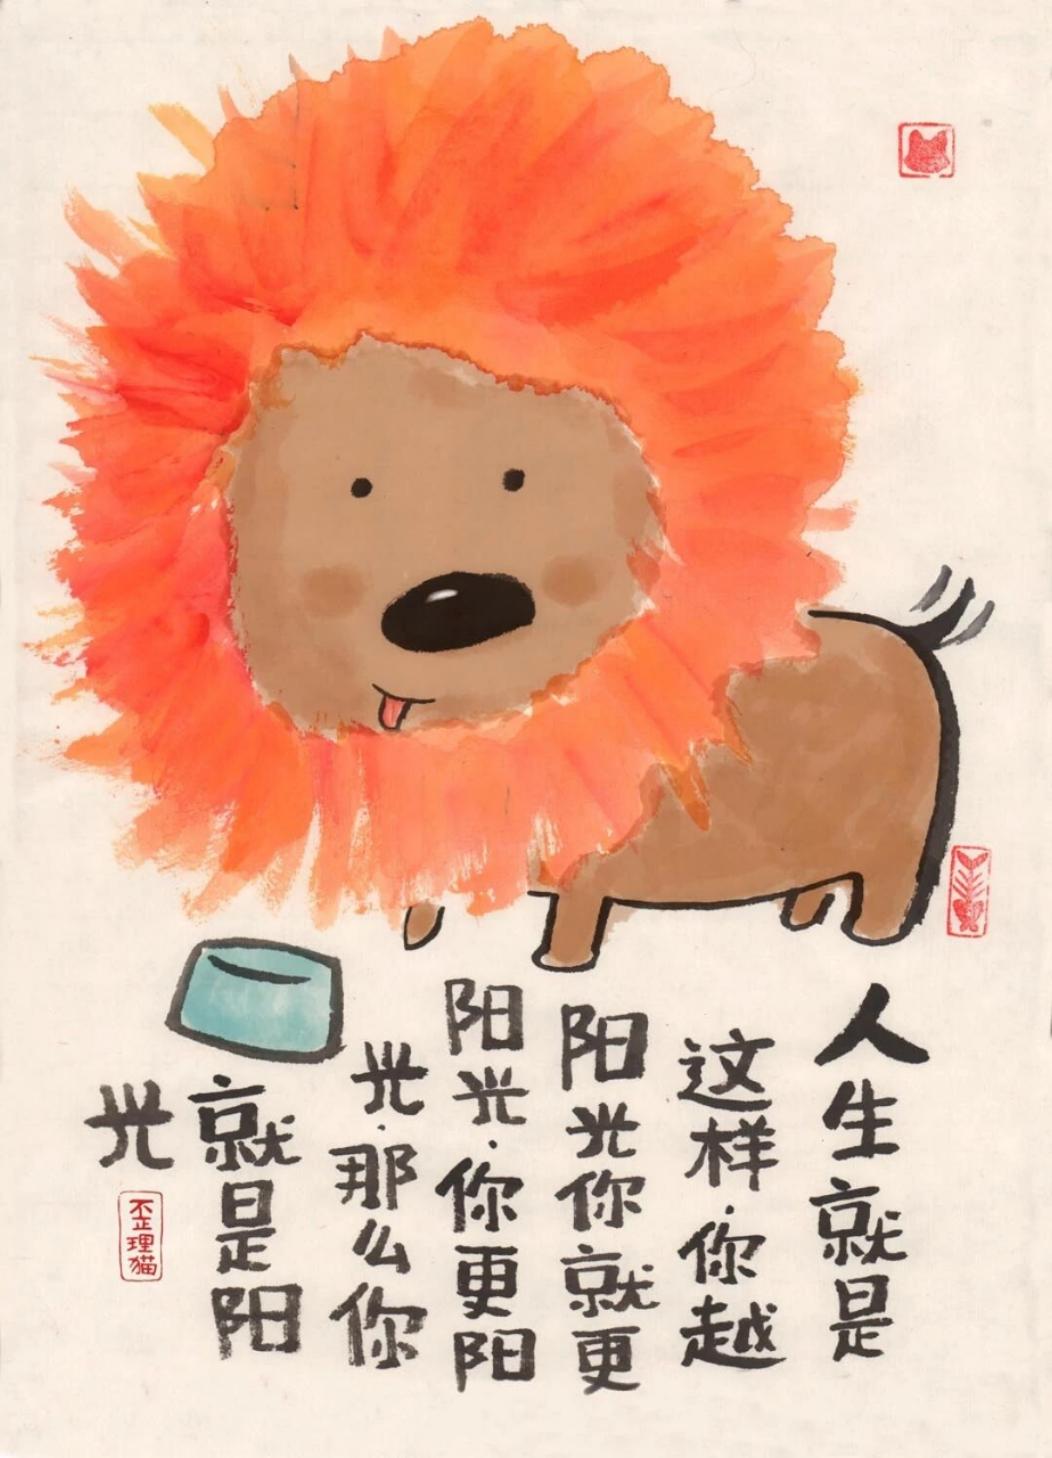 人生就是
这样·你越
阳光你就更
阳光·你更阳
光·那么你
就是阳
光
歪理猫